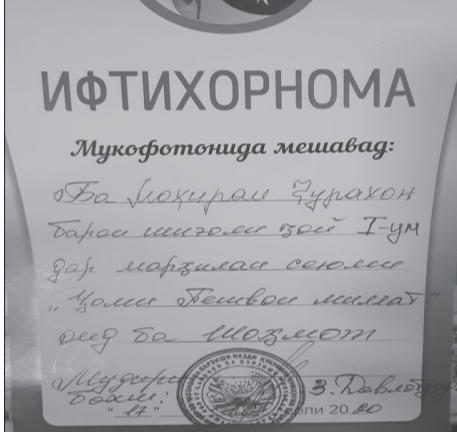 ИФТИХОРНОМА
Мукофотонида мешавад:
Ба Моҳираи Ҷурахон
барои ишғоли ҷой I-ум
дар марҳилаи сеюми
"Ҷоми Пешвои миллат"
оид ба шоҳмот
Мудири
бахш:
З. Давлат
"17" оли 2020